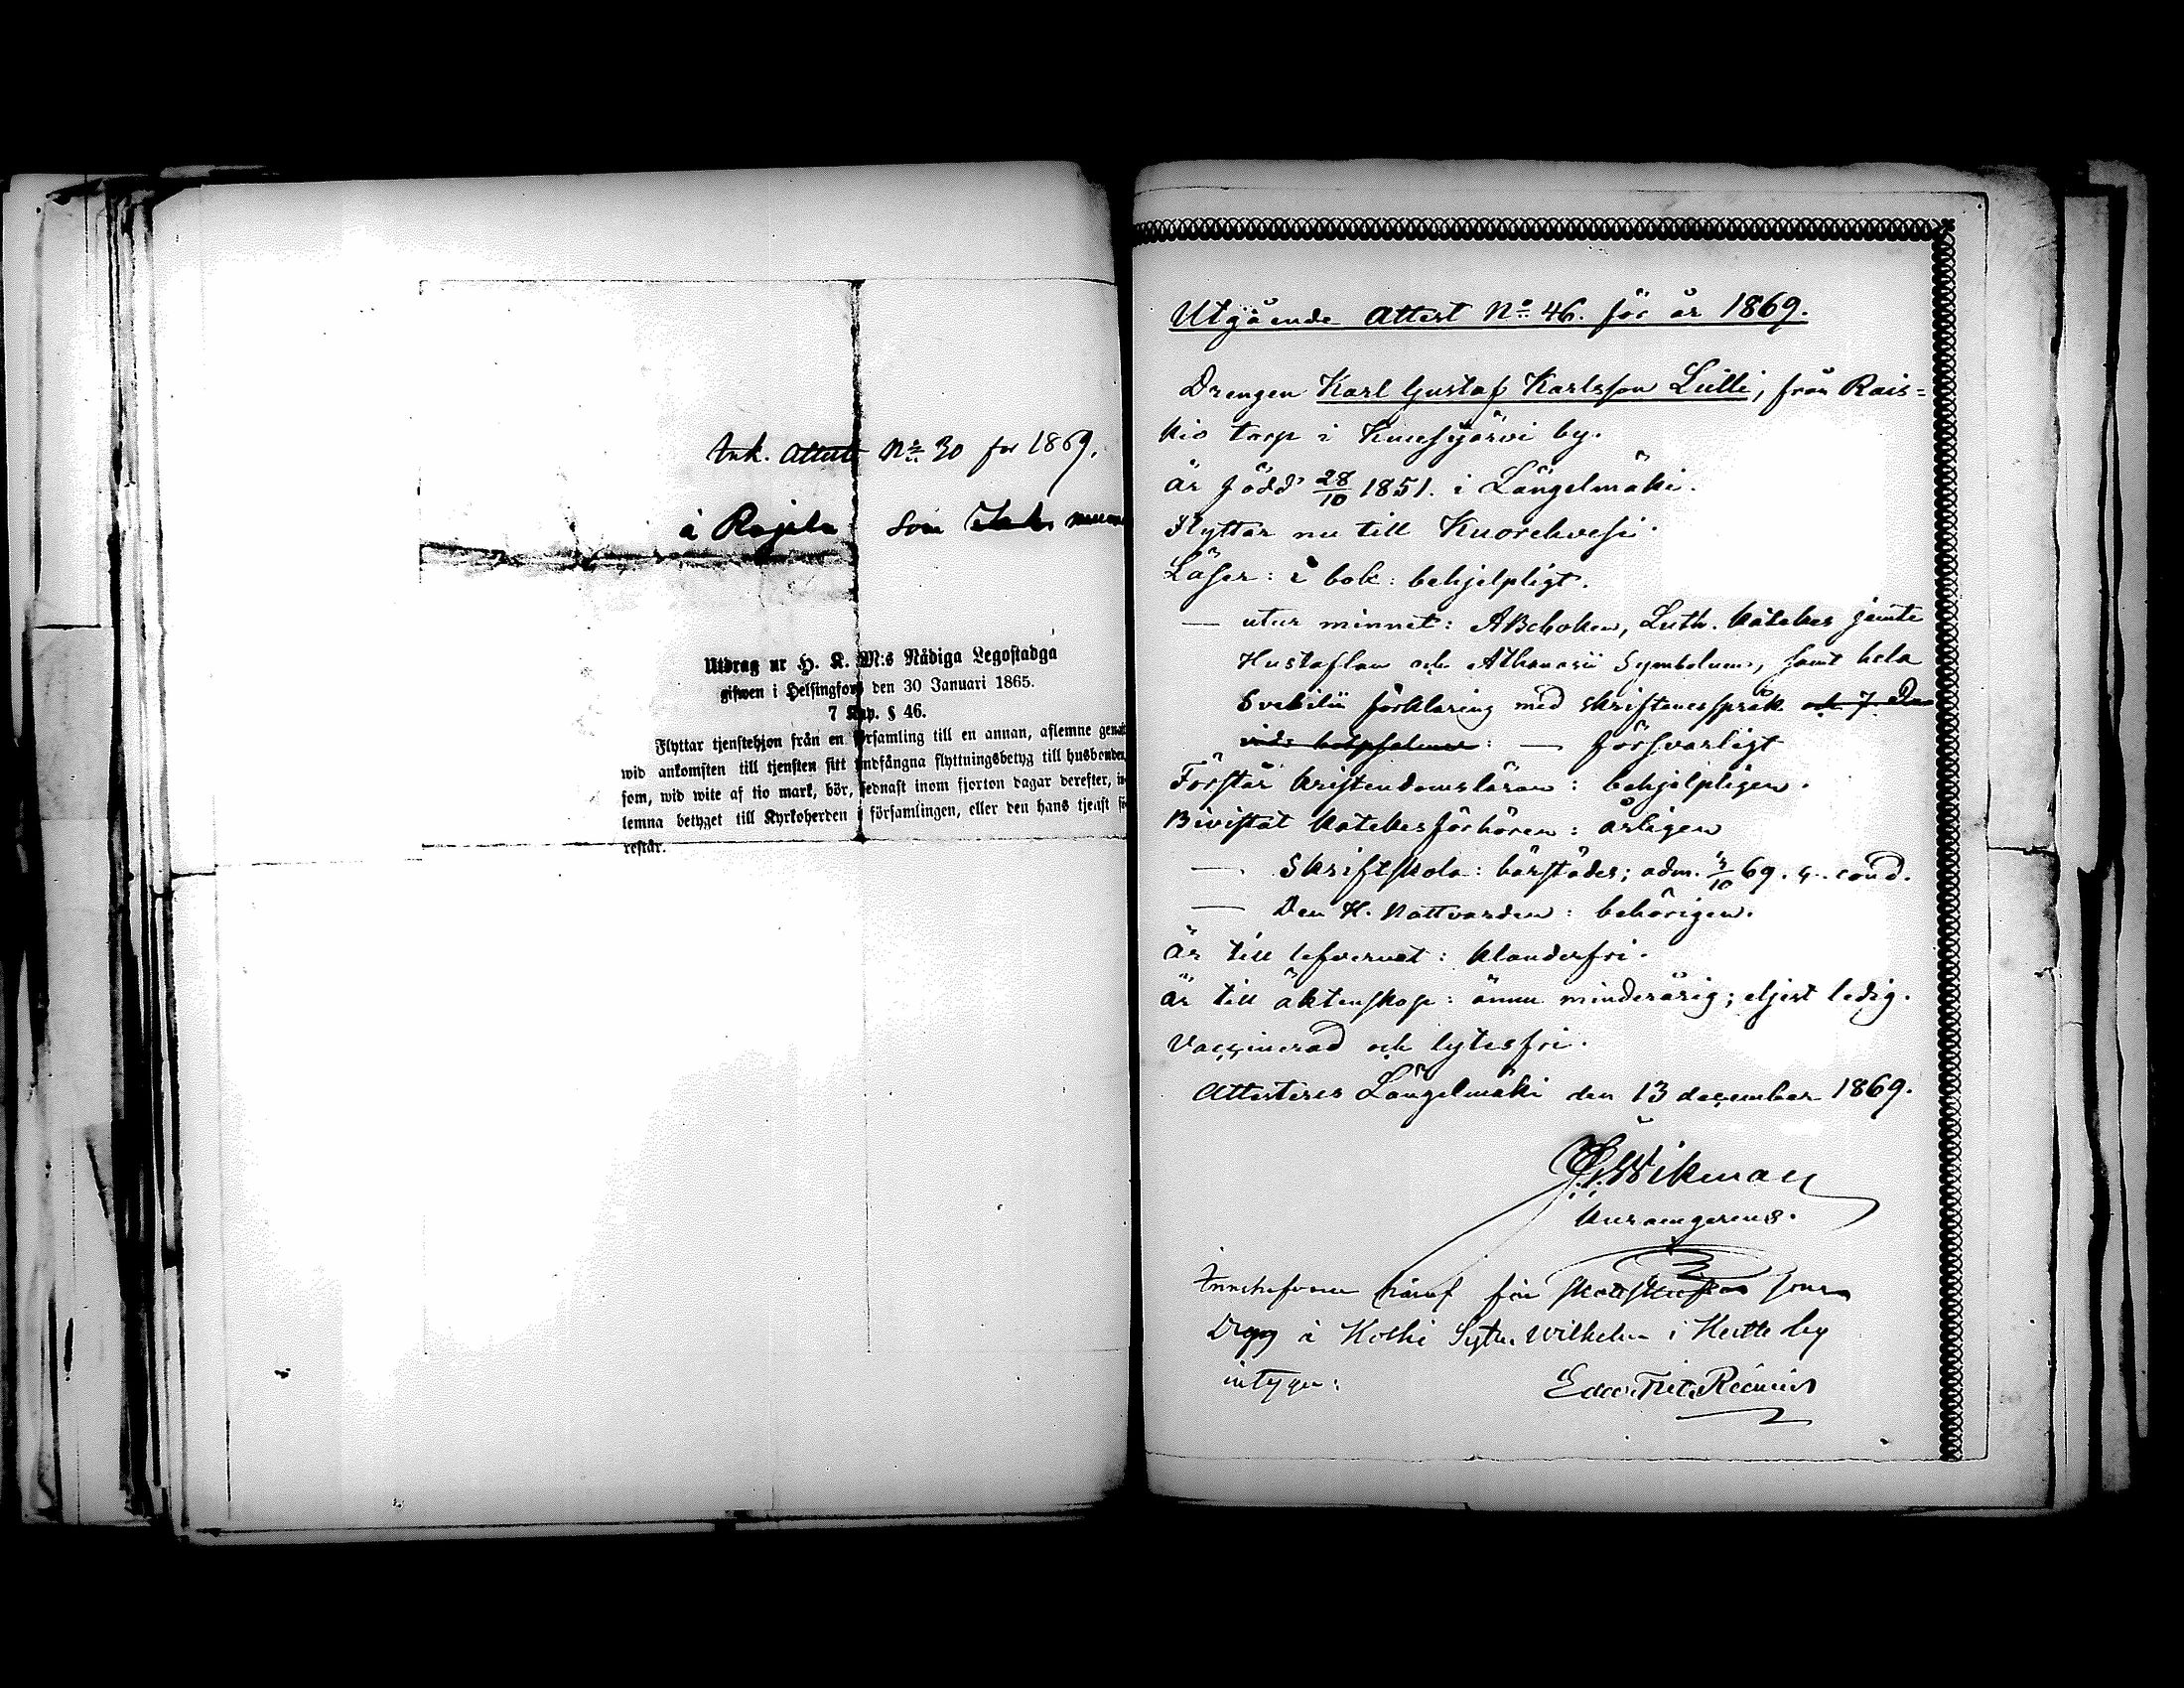 Ink. Attest No 30 for 1869.
å Rajala som
Utdrag ur H. K. M:s Nådiga Legostadga
gifwen i Helsingfors den 30 Januari 1865.
7 Kap. § 46.
Flyttar tjenstehjon från en församling till en annan, aflemne genast
wid ankomsten till tjensten sitt undfångna flyttningsbetyg till husbonden,
som, wid wite af tio mark, bör, sednast inom fjorton dagar derefter, in-
lemna betyget till Kyrkoherden i församlingen, eller den hans tjenst
restår.
Utgående Attest No 46. för år 1869.
Drengen Karl Gustaf Karlsson Lulli, från Rais=
kio torp i by.
är född 28/10 1851. i Längelmäki.
Flyttar nu till Kuorehvesi.
Läser: i bok: behjelpligt.
— utur minnet: ABCboken, Luth. katekes jemte
Hustaflan och Athanasii Symbolum, samt hela
Svebilii förklaring med skriftenes språk och 7 Da-
vids botpsalmer: — försvarligt
Förstår kristendomsläran: behjelpligen.
Bivistat katekesförhören: årligen
— Skriftskola: härstädes; adm. 3/10 69. c. cond.
— Den H. Nattvarden: behörigen.
Är till lefvernet: klanderfri.
Är till äktenskap: ännu minderårig; eljest ledig.
Vaccinerad och lytesfri.
Attesteras Längelmäki den 13 december 1869.
Wikman
kuraemgerens.
Innehafvaren häraf för skattskrifvas som
Dreng å Koski Sytn. Wilhelm i by
intygar: